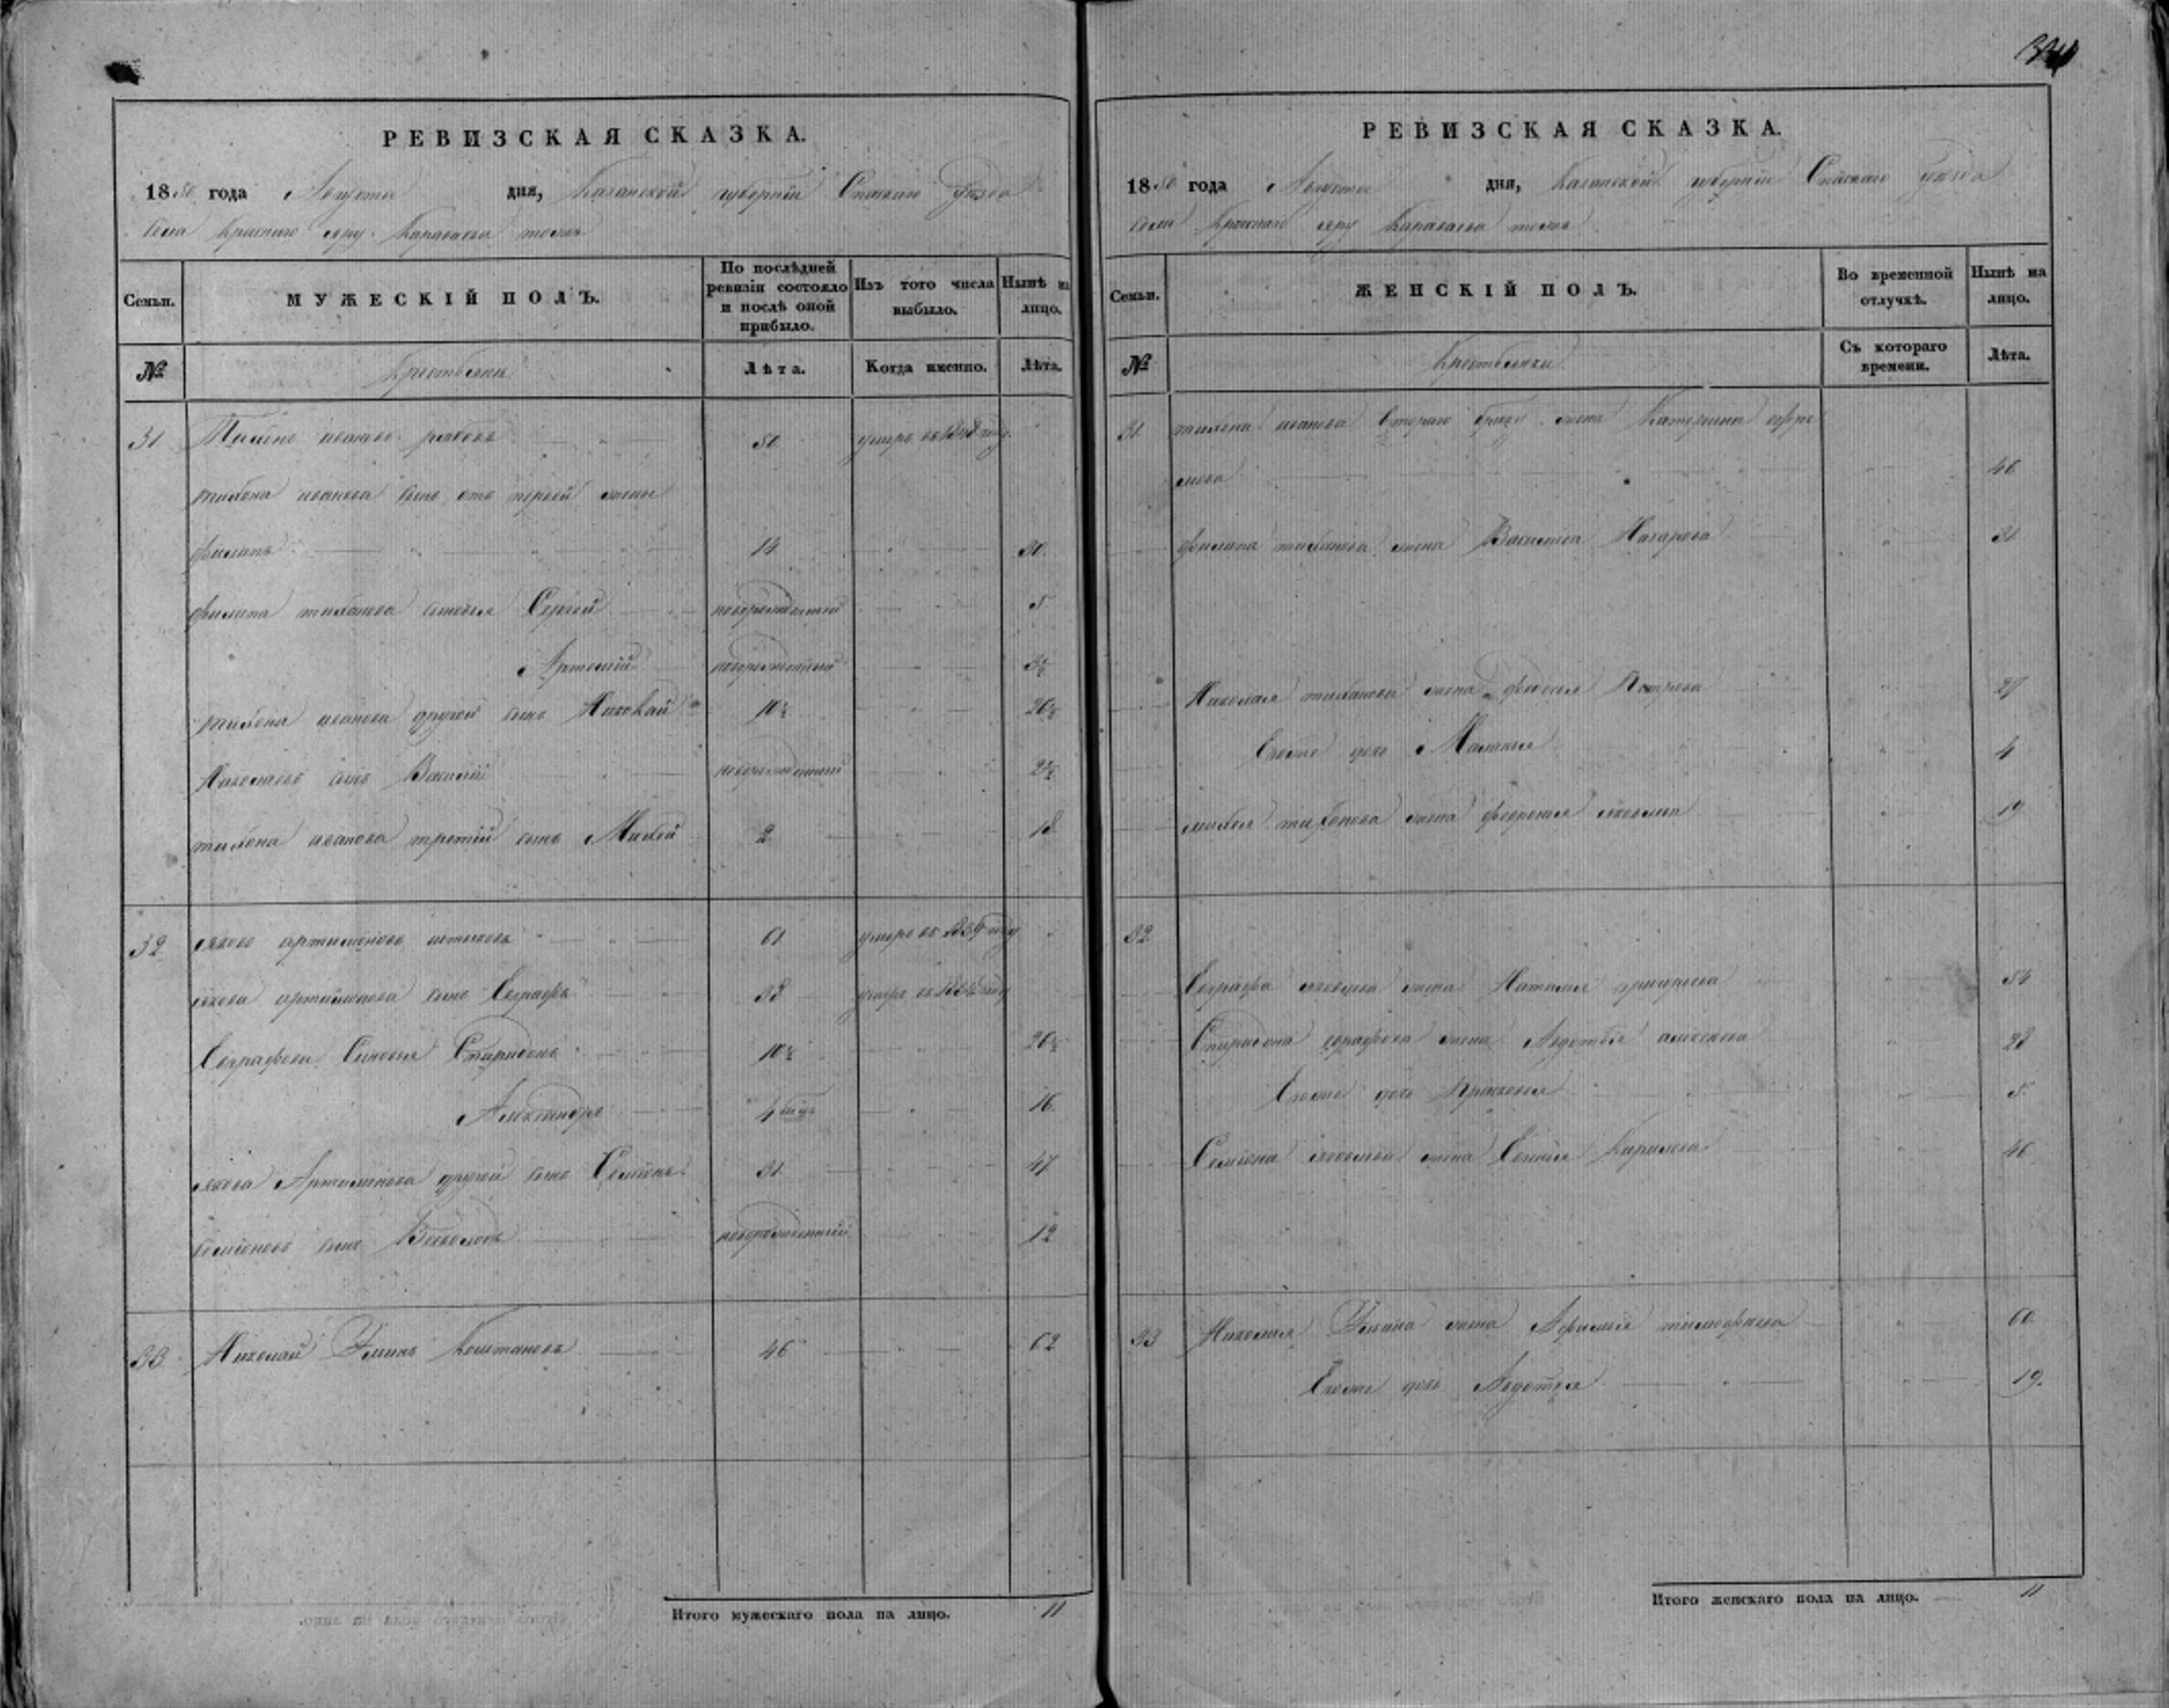 РЕВИЗСКАЯ СКАЗКА.
1850 года Августа дня, Казанской губернии Спаскаго уѣзда
села Краснаго яру Караваева тожъ
Семьи.
МУЖЕСКІЙ ПОЛЪ.
По послѣдней ревизіи состояло и послѣ оной прибыло.
Изъ того числа выбыло.
Нынѣ на лицо.
№
Крестьяне
Лѣта.
Когда именно.
Лѣта.
31 Тихонъ ивановъ рябовъ 50 умеръ въ 1848 году
тихона иванова сынъ отъ первой жены
филипъ 14 30
филипа тихонова сыновья Сергей новорожденный 5
Артемий новорожденный 3½
тихона иванова другой сынъ Николай 10½ 26½
Николаевъ сынъ Василий новорожденный 2½
тихона иванова третий сынъ Михей 2 18
32 яковъ артимоновъ 61 умеръ въ 1839 году
якова артимонова сынъ Евграфъ 38 умеръ въ году
Евграфовы Сыновья Спиридонъ 10½ 26½
Александръ 4 16
якова Артимонова другой сынъ Семионъ 31 47
семионовъ сынъ Всеволодъ новорожденный 12
33 Николай 46 62
Итого мужескаго пола на лицо. 11
РЕВИЗСКАЯ СКАЗКА.
1850 года Августа дня, Казанской губернии Спаскаго уѣзда
села Краснаго яру Караваева тожъ
Семьи.
ЖЕНСКІЙ ПОЛЪ.
Во временной отлучкѣ.
Нынѣ на лицо.
№
Крестьянки
Съ котораго времени.
Лѣта.
31 тихона иванова втораго браку жена Катерина ефре
мова 46
филипа тихонова жена Василиса Назарова 31
Николая тихонова жена федосья Петрова 27
Ево же дочь Маланья 4
михея тихонова жена яковлева 19
32
Евграфа яковлева жена Наталья григорьева 54
Спиридона евграфова жена Авдотья алексеева 28
Ево же дочь Прасковья 5
Семиона яковлева жена Кирилова 46
33 Николая жена Афимья тимофеева 60
Ево же дочь Авдотья 19
Итого женскаго пола на лицо. 11